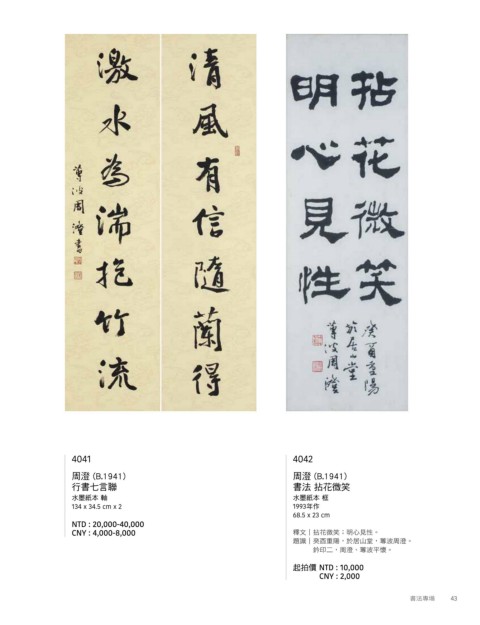 清風有信隨蘭得
激水為湍抱竹流
蓴波周澄書
拈花微笑
明心見性
癸酉重陽
於居山堂
蓴波周澄
4041
周澄 (B.1941)
行書七言聯
水墨紙本 軸
134 x 34.5 cm x 2
NTD : 20,000-40,000
CNY : 4,000-8,000
4042
周澄 (B.1941)
書法 拈花微笑
水墨紙本 框
1993年作
68.5 x 23 cm
釋文｜拈花微笑；明心見性。
題識｜癸酉重陽，於居山堂，蓴波周澄。
鈐印二，周澄、蓴波平懷。
起拍價 NTD : 10,000
CNY : 2,000
書法專場 43